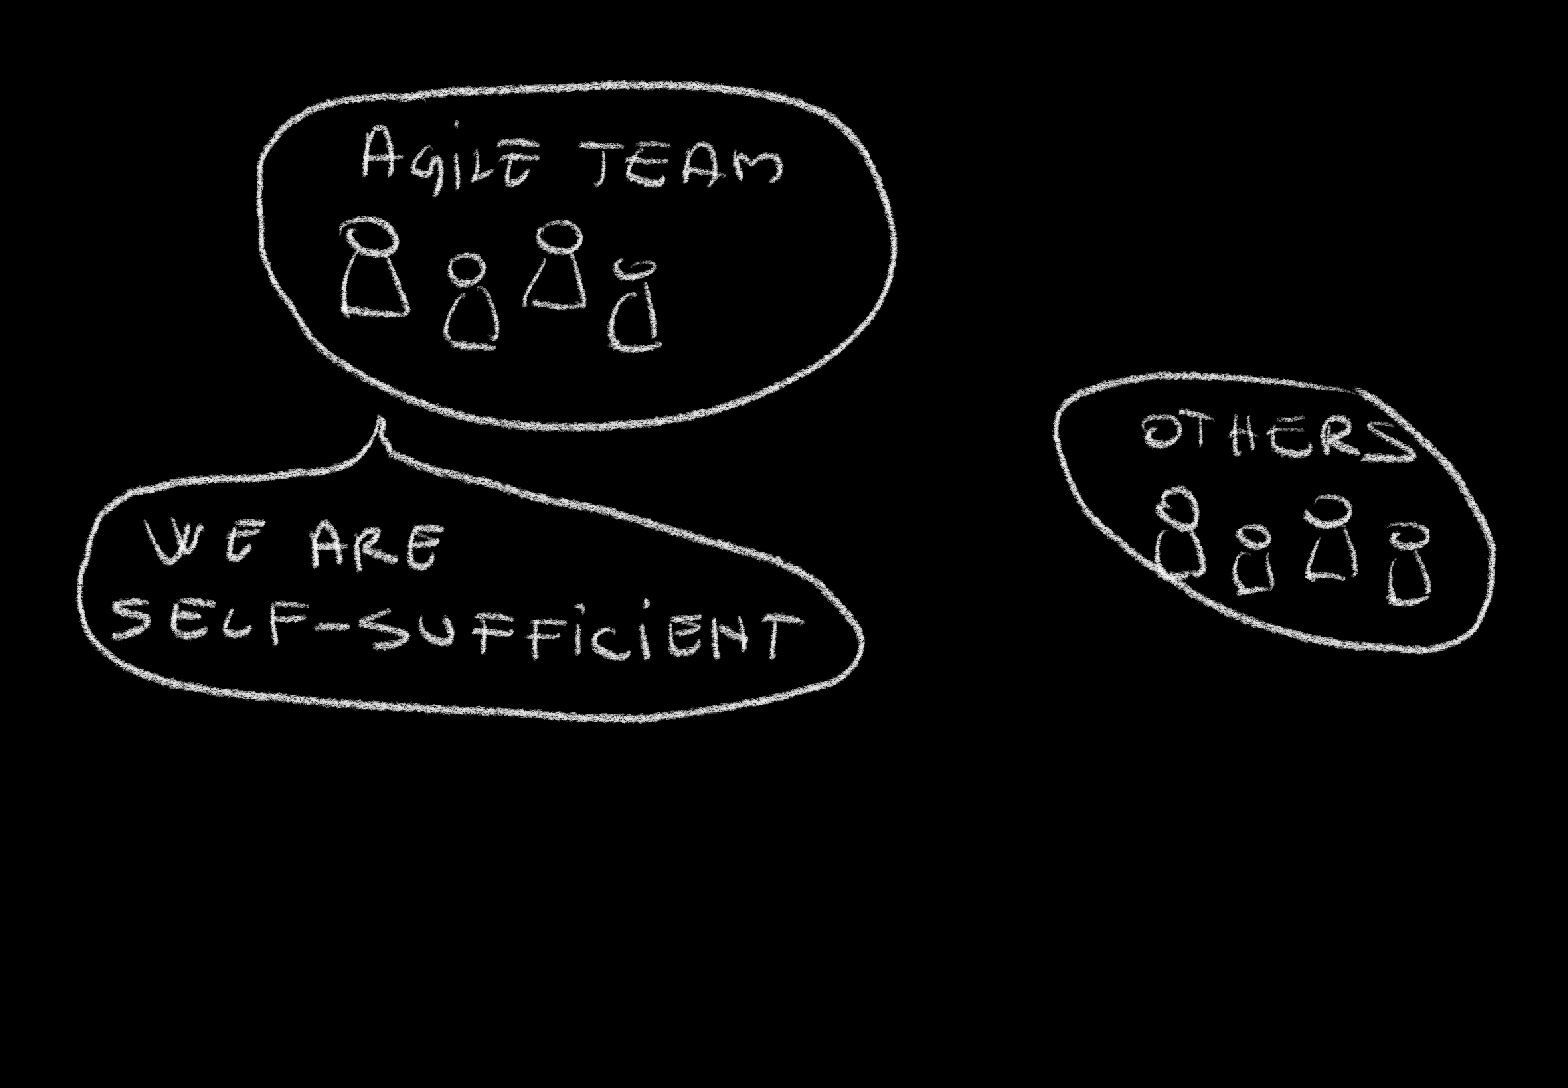 AGiLE TEAM
WE ARE
SELF-SUFFiCiENT
OTHERS